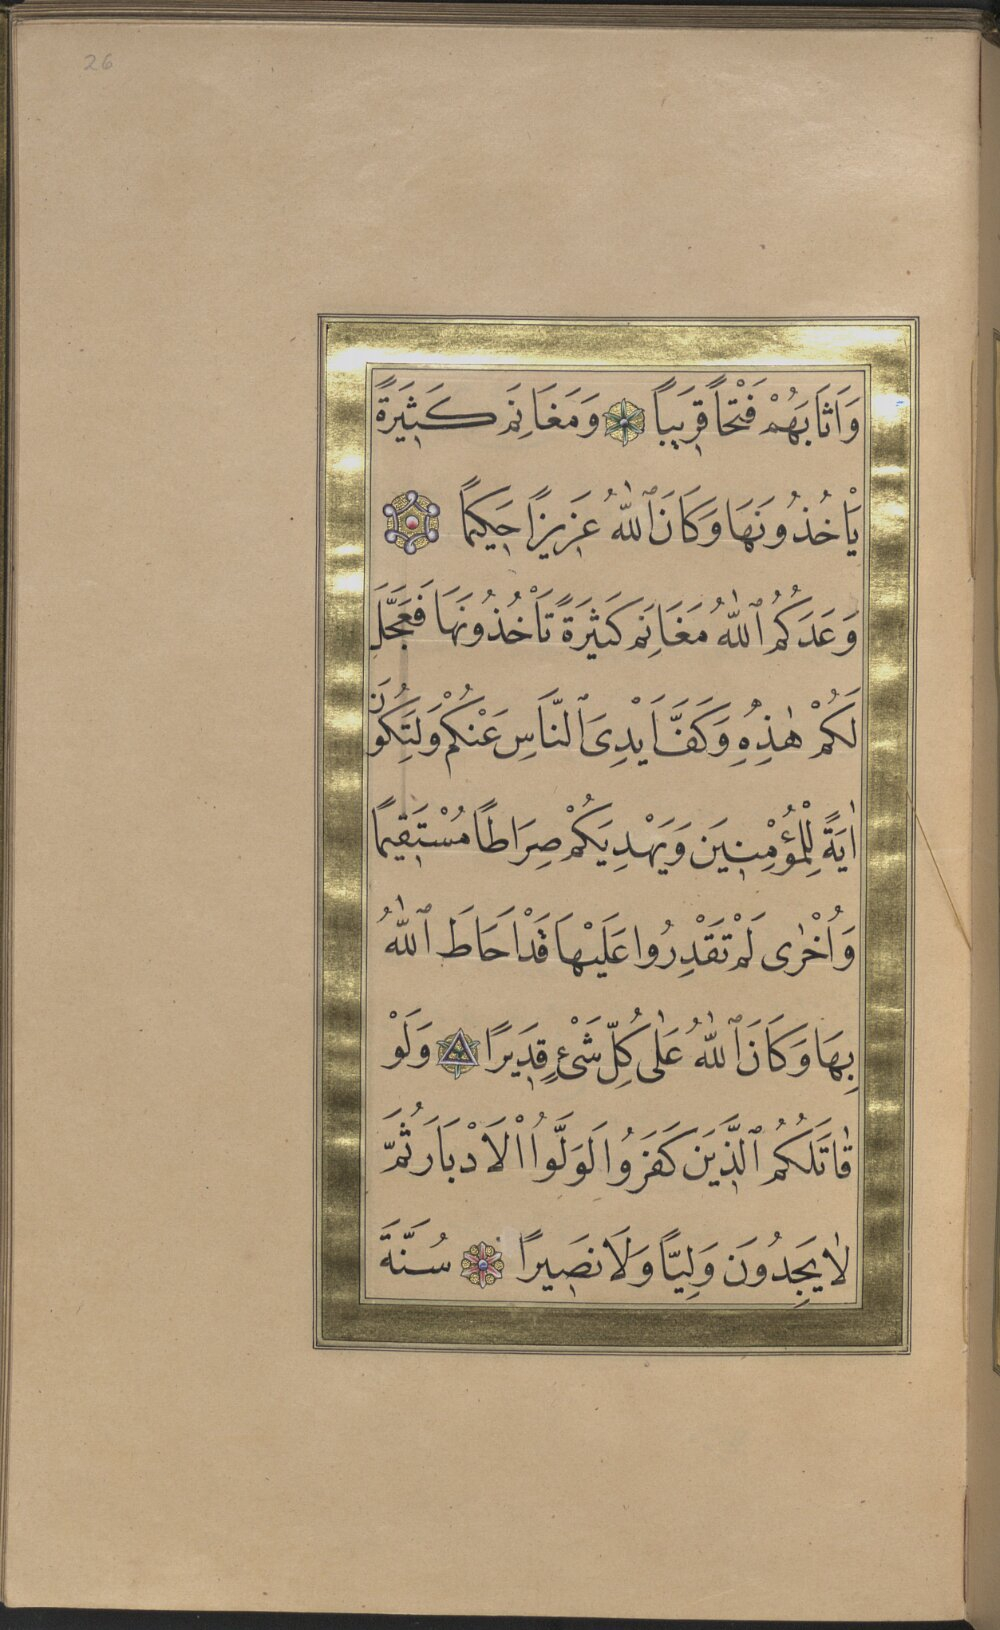 26
وَاَثَابَهُمْ فَتْحًا قَرِيبًا وَمَغَانِمَ كَثِيرَةً
يَأْخُذُونَهَا وَكَانَ ٱللّٰهُ عَزِيزًا حَكِيمًا
وَعَدَكُمُ ٱللّٰهُ مَغَانِمَ كَثِيرَةً تَأْخُذُونَهَا فَعَجَّلَ
لَكُمْ هٰذِهِ وَكَفَّ اَيْدِىَ ٱلنَّاسِ عَنْكُمْ وَلِتَكُونَ
اٰيَةً لِلْمُؤْمِنِينَ وَيَهْدِيَكُمْ صِرَاطًا مُسْتَقِيمًا
وَاُخْرٰى لَمْ تَقْدِرُوا عَلَيْهَا قَدْ اَحَاطَ ٱللّٰهُ
بِهَا وَكَانَ ٱللّٰهُ عَلٰى كُلِّ شَىْءٍ قَدِيرًا وَلَوْ
قَاتَلَكُمُ ٱلَّذِينَ كَفَرُوا لَوَلَّوُا اْلاَدْبَارَ ثُمَّ
لَا يَجِدُونَ وَلِيًّا وَلَا نَصِيرًا سُنَّةَ